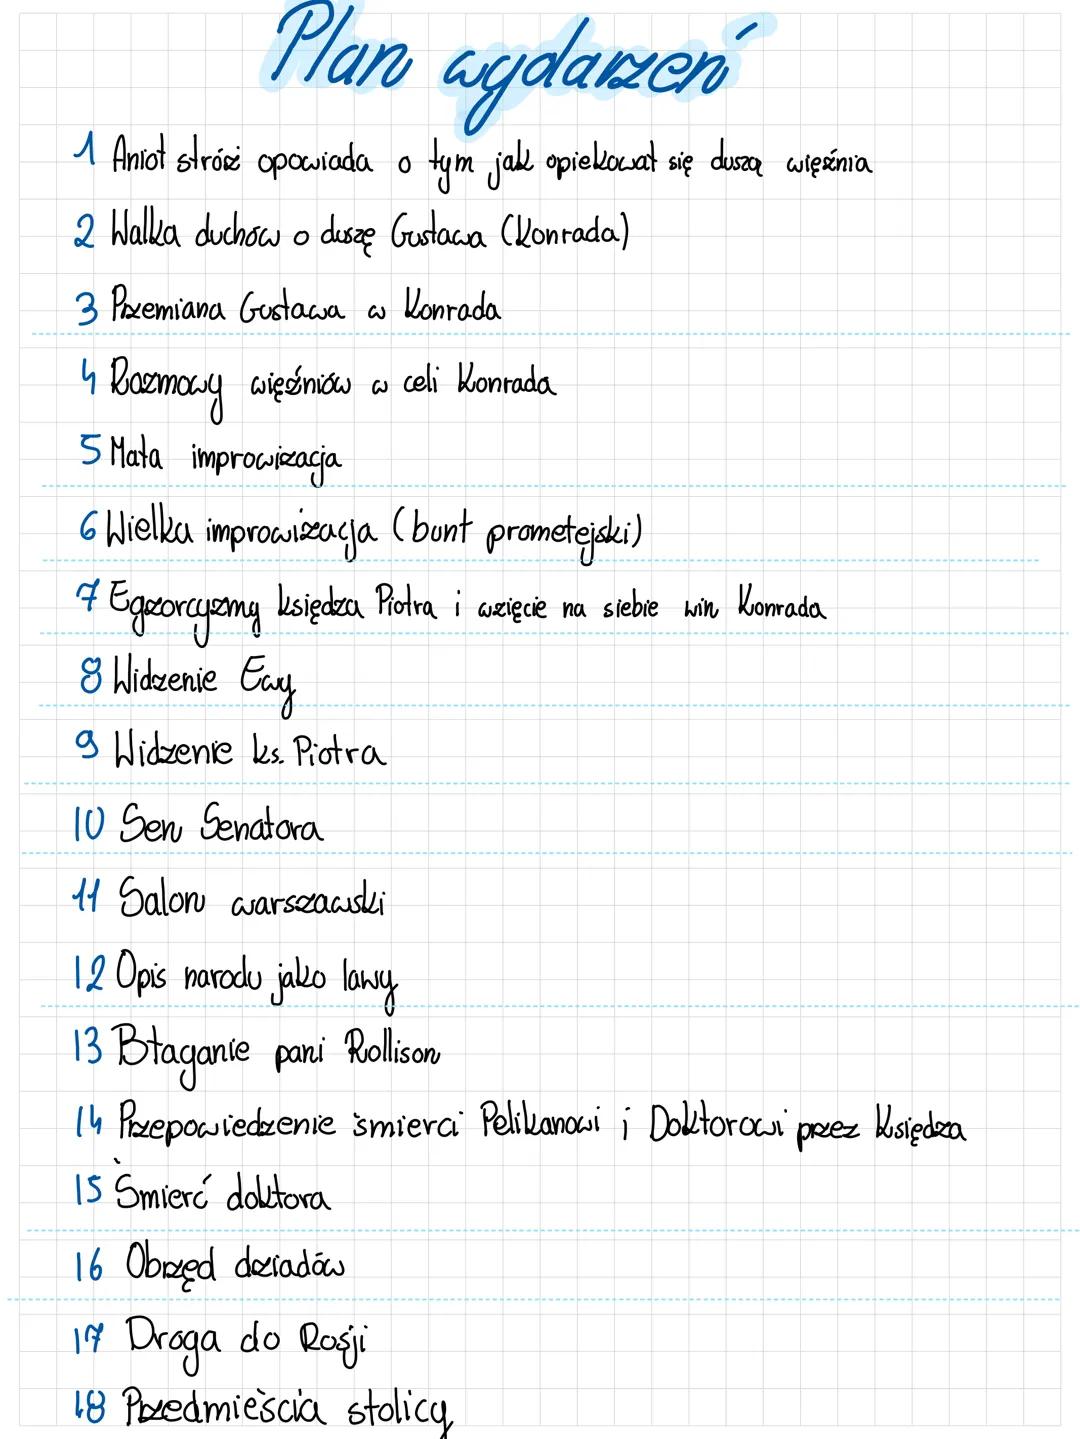 Plan wydarzeń
1 Anioł stróż opowiada o tym jak opiekował się duszą więźnia
2 Walka duchów o duszę Gustawa (Konrada)
3 Przemiana Gustawa w Konrada
4 Rozmowy więźniów w celi Konrada
5 Mała improwizacja
6 Wielka improwizacja (bunt prometejski)
7 Egzorcyzmy księdza Piotra i wzięcie na siebie win Konrada
8 Widzenie Ewy
9 Widzenie ks. Piotra
10 Sen Senatora
11 Salon warszawski
12 Opis narodu jako lawy
13 Błaganie pani Rollison
14 Przepowiedzenie śmierci Pelikanowi i Doktorowi przez Księdza
15 Śmierć doktora
16 Obrzęd dziadów
17 Droga do Rosji
18 Przedmieścia stolicy